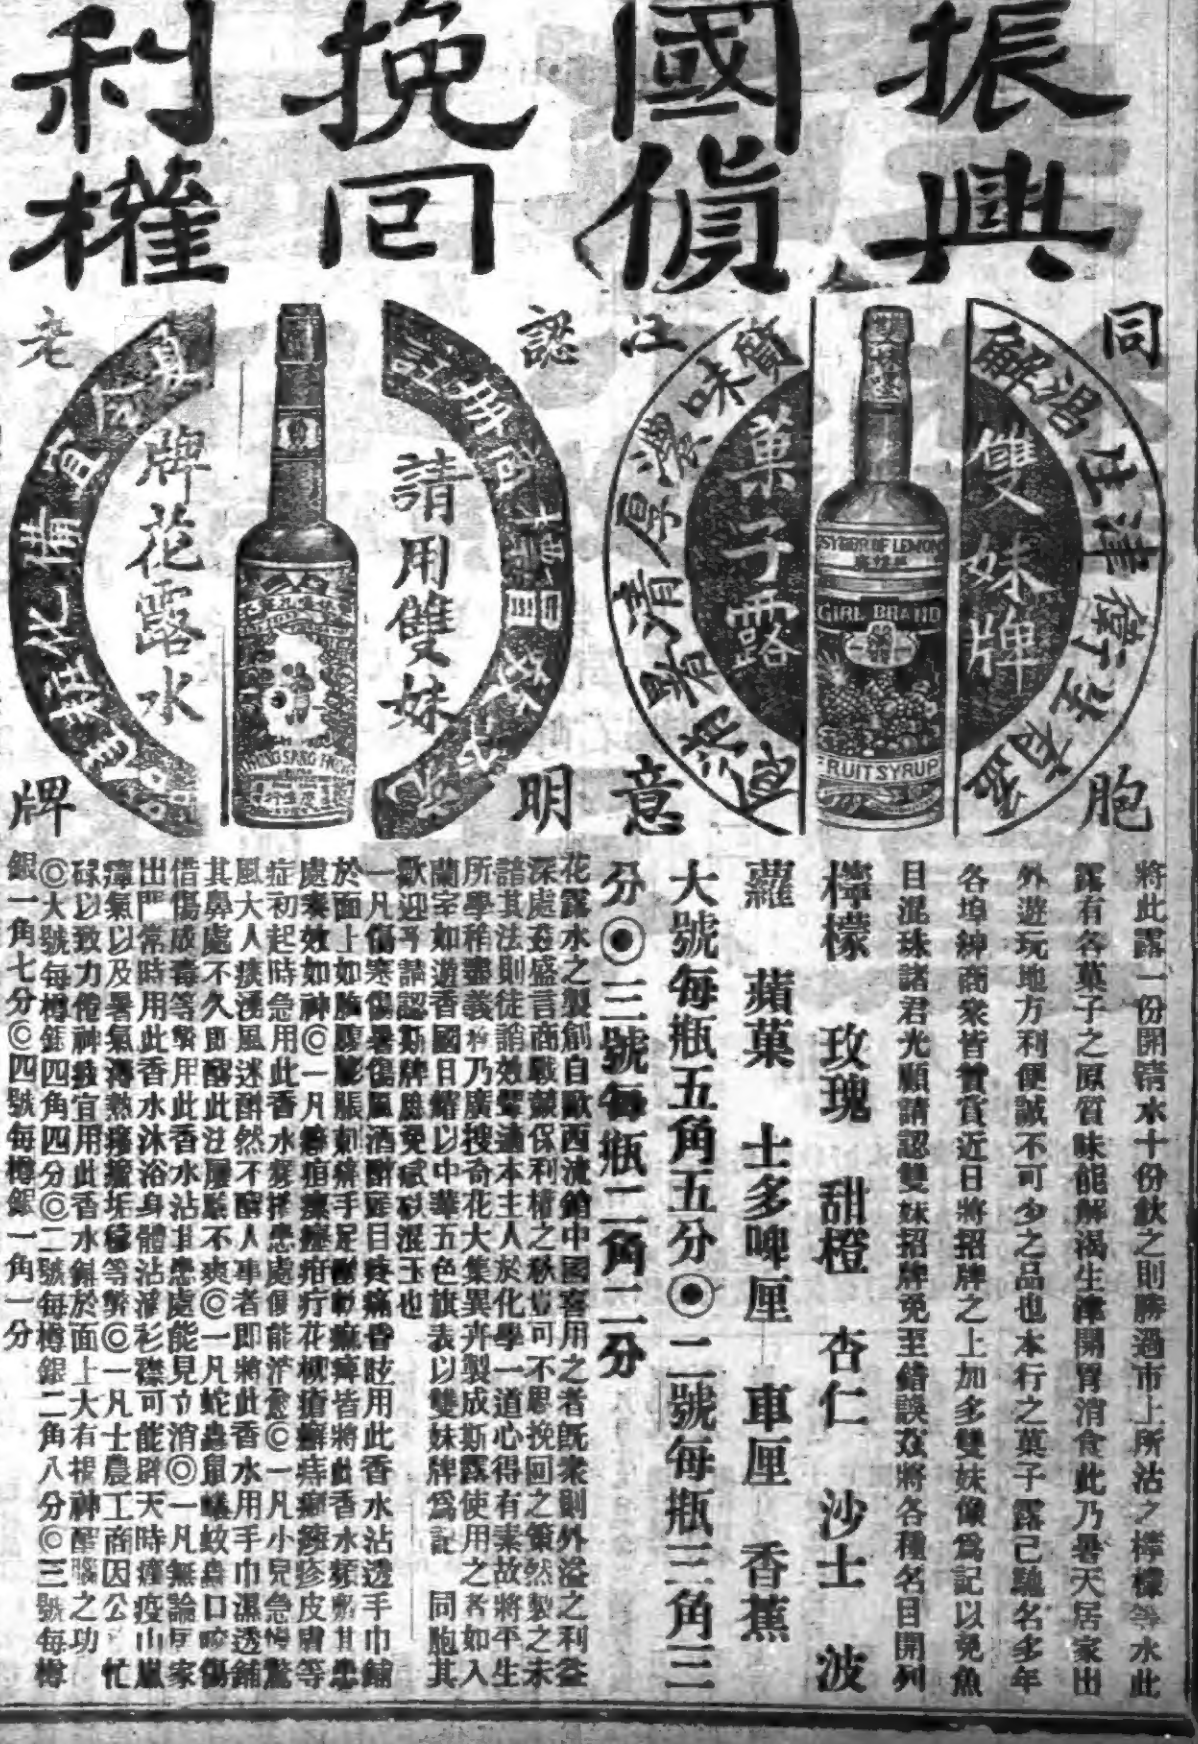 振興
國貨
挽回
利權
同胞
注意
認明
老牌
解渴生津衛生有益
雙妹牌
菓子露
質味濃厚清暑
SYRUP OF LEMON
GIRL BRAND
FRUIT SYRUP
註冊商標
請用雙妹
牌花露水
KWONG SANG HONG
將此露一份開清水十份飲之則勝過市上所沽之檸檬等水此
露有各菓子之原質味能解渴生津開胃消食此乃暑天居家出
外遊玩地方利便誠不可少之品也本行之菓子露已馳名多年
各埠紳商衆皆贊賞近日將招牌之上加多雙妹像爲記以免魚
目混珠諸君光顧請認雙妹招牌免至錯誤茲將各種名目開列
檸檬 玫瑰 甜橙 杏仁 沙士 波
蘿 蘋菓 士多啤厘 車厘 香蕉
大號每瓶五角五分◉二號每瓶三角三
分◉三號每瓶二角二分
花露水之製創自歐西流館中國喜用之者既衆則外溢之利益
深處茲盛言商戰競保利權之秋豈可不思挽回之策然製之未
諳其法則徒誚效顰適本主人於化學一道心得有素故將平生
所學稍盡義務乃廣搜奇花大集異卉製成斯露使用之者如入
蘭室如遊香國日縮以中華五色旗表以雙妹牌爲記 同胞其
歡迎乎請認斯牌庶免碔砆混玉也
一凡傷寒傷暑傷風酒醉頭目疼痛昏眩用此香水沾透手巾鋪
於面上如膨脹刺痺手足痲痺皆將此香水頻擦其患
處奏效如神◎一凡癤疽瘰癧疳疔花柳瘡癬痔癩癍疹皮膚等
症初起時急用此香水頻擦患處便能消愈◎一凡小兒急慢驚
風大人痰湧風迷酣然不醒人事者即將此香水用手巾濕透鋪
其鼻處不久即醒此注屢驗不爽◎一凡蛇蟲鼠蟻蚊蟲口咬傷
借傷成毒等弊用此香水沾其患處能見立消◎一凡無論居家
出門常時用此香水沐浴身體沾滌衫襟可能辟天時癘疫山嵐
瘴氣以及暑氣薄熱癍癤垢穢等弊◎一凡士農工商因公忙
碌以致力倦神疲宜用此香水鋪於面上大有提神醒腦之功
◎大號每樽銀四角四分◎二號每樽銀二角八分◎三號每樽
銀一角七分◎四號每樽銀一角一分